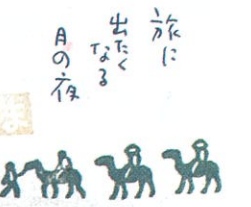 旅に
出たく
なる
月の夜